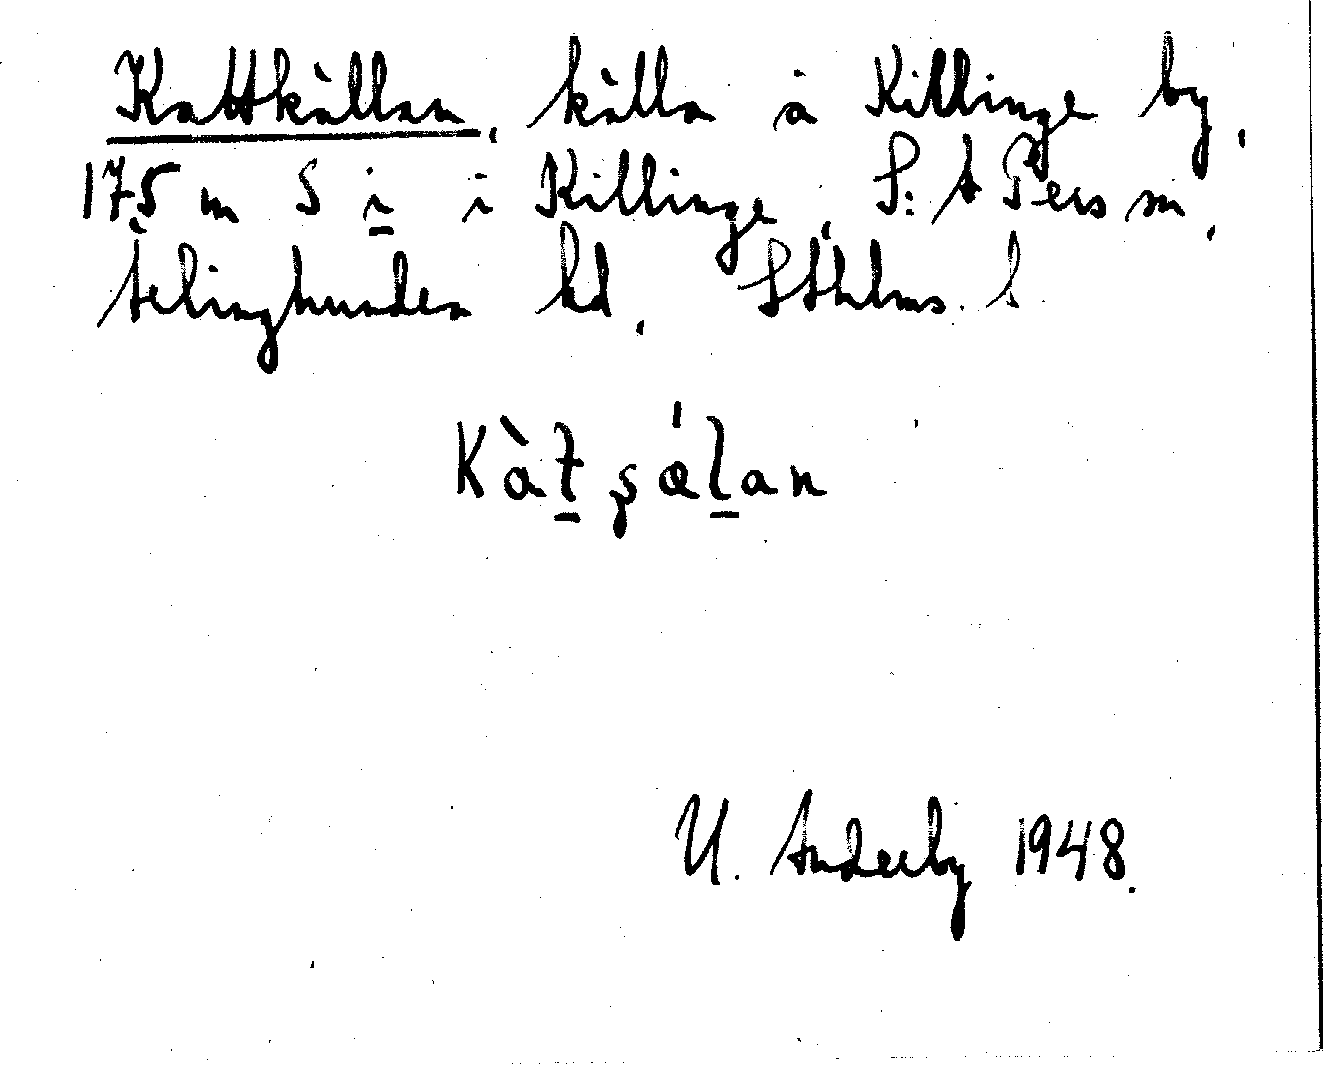 Kattkällan, källa å Killinge by,
175 m S i i Killinge, S:t Pers sn,
Ärlinghundra hd, Sthlms l
Kàt̠ şǽl̠an
U. Anderby 1948.